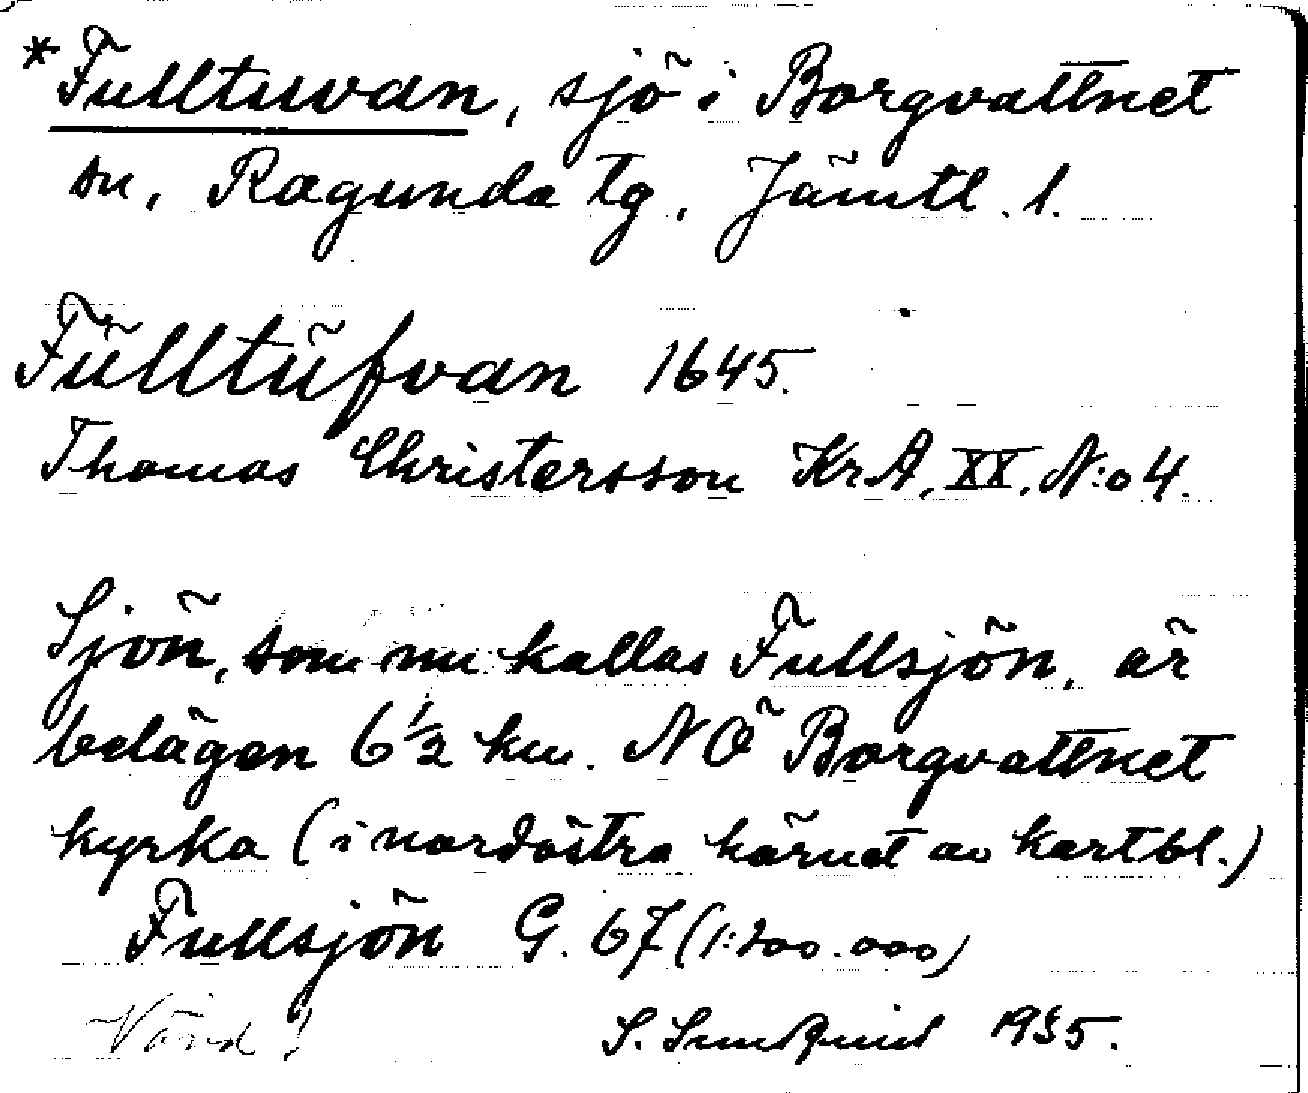 *Fulltuvan, sjö i Borgvattnet
sn, Ragunda tg, Jämtl. l.
Fülltüfvan 1645.
Thomas Christersson KrA, XX, N:o 4.
Sjön, som nu kallas Fullsjön, är
belägen 6 1/2 km. NÖ Borgvattnet
kyrka (i nordöstra hörnet av kartbl.)
Fullsjön G. 67 (1:200.000)
S. Sundquist 1935.